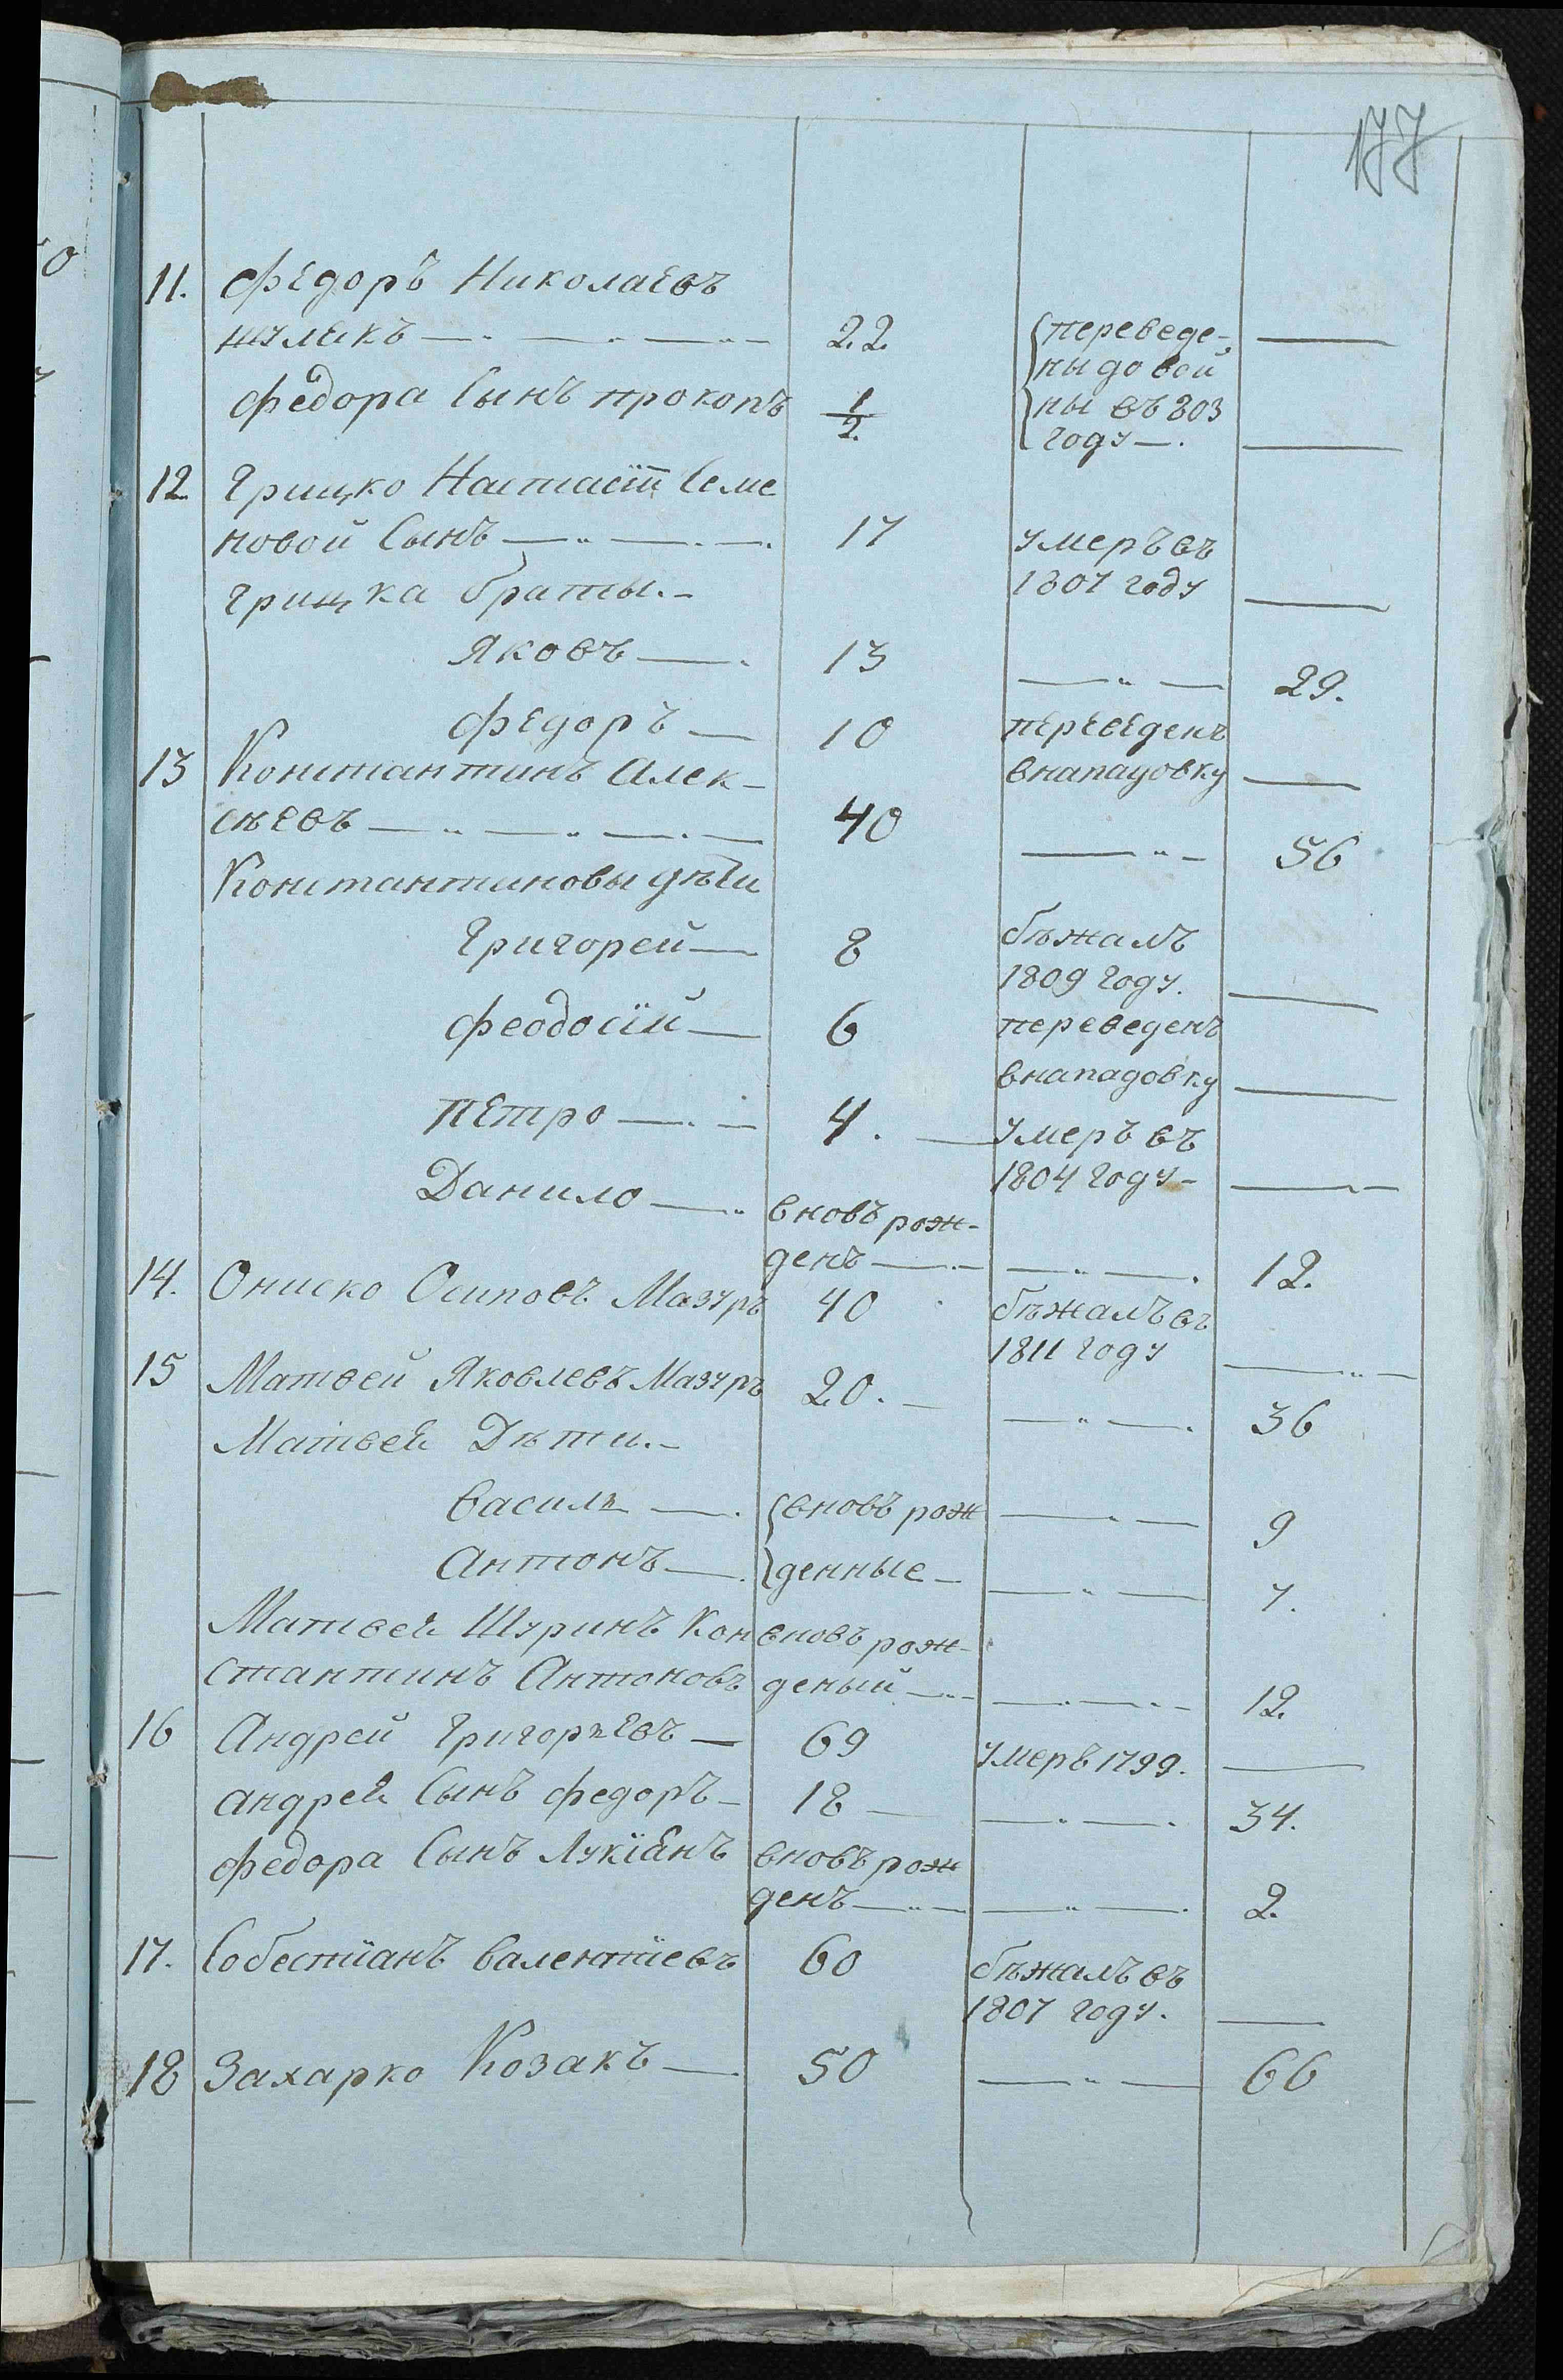 177
11. Федоръ Николаевъ
шулякъ — 22 переведе-
ны довой
Федора Сынъ прокопъ 1/2 ны въ 803
году —
12. Грицко Настасіи Семе
новой Сынъ — 17 умеръ въ
Грицка браты.- 1807 году —
Яковъ — 13 — 29.
Федоръ — 10 переведенъ
13 Константинъ Алек- внападовку —
сѣевъ — 40 — 56
Константиновы дѣти
Григорей — 8 бѣжалъ
1809 году. —
Феодосій — 6 переведенъ
внападовку —
петро — 4. — умеръ въ
1804 году- —
Данило — вновъ рож-
денъ — — 12.
14. Ониско Осиповъ Мазуръ 40 бѣжалъ въ
1811 году —
15 Матвей Яковлевъ Мазуръ 20. — — 36
Матвея Дѣти.-
василь — вновъ рож — 9
Антонъ — денные — — 7.
Матвея Шуринъ Кон вновъ рож-
стантинъ Антоновъ деный — — 12.
16 Андрей Григорьевъ — 69 умеръ 1799. —
андрея Сынъ федоръ — 18 — — 34.
федора Сынъ Лукіянъ вновъ рож
денъ — — 2.
17. Собестіанъ валентіевъ 60 бѣжалъ въ
1807 году. —
18 Захарко Козакъ — 50 — 66